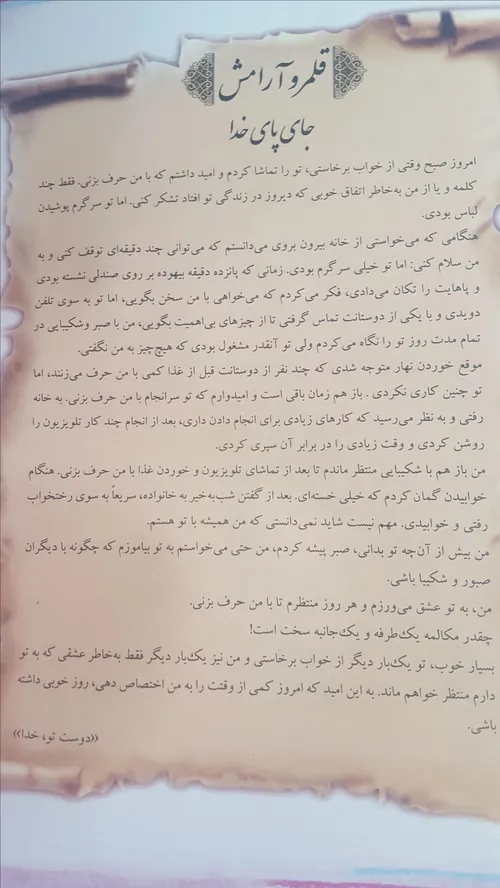 قلمرو آرامش
جای پای خدا
امروز صبح وقتی از خواب برخاستی، تو را تماشا کردم و امید داشتم که با من حرف بزنی. فقط چند
کلمه و یا از من به‌خاطر اتفاق خوبی که دیروز در زندگی تو افتاد تشکر کنی. اما تو سرگرم پوشیدن
لباس بودی.
هنگامی که می‌خواستی از خانه بیرون بروی می‌دانستم که می‌توانی چند دقیقه‌ای توقف کنی و به
من سلام کنی: اما تو خیلی سرگرم بودی. زمانی که پانزده دقیقه بیهوده بر روی صندلی نشسته بودی
و پاهایت را تکان می‌دادی، فکر می‌کردم که می‌خواهی با من سخن بگویی، اما تو به سوی تلفن
دویدی و با یکی از دوستانت تماس گرفتی تا از چیزهای بی‌اهمیت بگویی، من با صبر وشکیبایی در
تمام مدت روز تو را نگاه می‌کردم ولی تو آنقدر مشغول بودی که هیچ‌چیز به من نگفتی.
موقع خوردن نهار متوجه شدی که چند نفر از دوستانت قبل از غذا کمی با من حرف می‌زنند، اما
تو چنین کاری نکردی . باز هم زمان باقی است و امیدوارم که تو سرانجام با من حرف بزنی. به خانه
رفتی و به نظر می‌رسید که کارهای زیادی برای انجام دادن داری، بعد از انجام چند کار تلویزیون را
روشن کردی و وقت زیادی را در برابر آن سپری کردی.
من باز هم با شکیبایی منتظر ماندم تا بعد از تماشای تلویزیون و خوردن غذا با من حرف بزنی. هنگام
خوابیدن گمان کردم که خیلی خسته‌ای. بعد از گفتن شب‌به‌خیر به خانواده، سریعاً به سوی رختخواب
رفتی و خوابیدی. مهم نیست شاید نمی‌دانستی که من همیشه با تو هستم.
من بیش از آن‌چه تو بدانی، صبر پیشه کردم، من حتی می‌خواستم به تو بیاموزم که چگونه با دیگران
صبور و شکیبا باشی.
من، به تو عشق می‌ورزم و هر روز منتظرم تا با من حرف بزنی.
چقدر مکالمه یک‌طرفه و یک‌جانبه سخت است!
بسیار خوب، تو یک‌بار دیگر از خواب برخاستی و من نیز یک‌بار دیگر فقط به‌خاطر عشقی که به تو
دارم منتظر خواهم ماند. به این امید که امروز کمی از وقتت را به من اختصاص دهی، روز خوبی داشته
باشی.
«دوست تو، خدا»